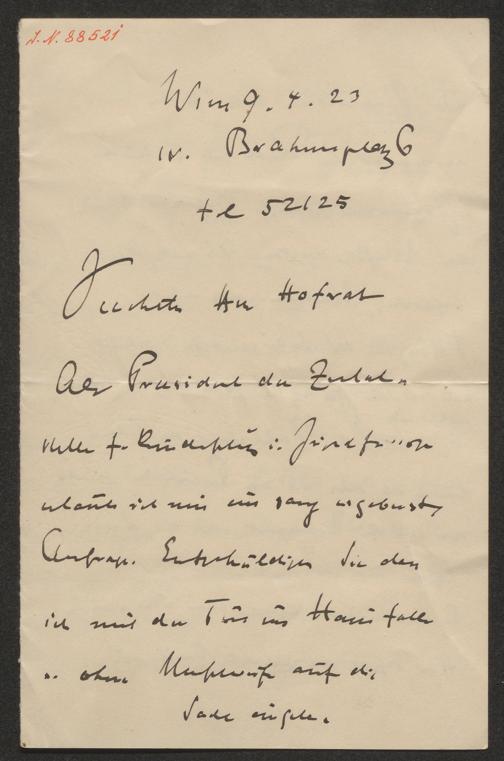 I.N. 88521
Wien 9. 4. 23
IV. Brahmsplatz 6
tel 52125
Herr Hofrat
Als Präsident der Zentral-
stelle f. Kinderschutz u. Jugendfürsorge
erlaube ich mir eine ganz ergebenste
Anfrage. Entschuldigen Sie dass
ich mit der Tür ins Haus falle
u. ohne Umschweife auf die
Sache eingehe.